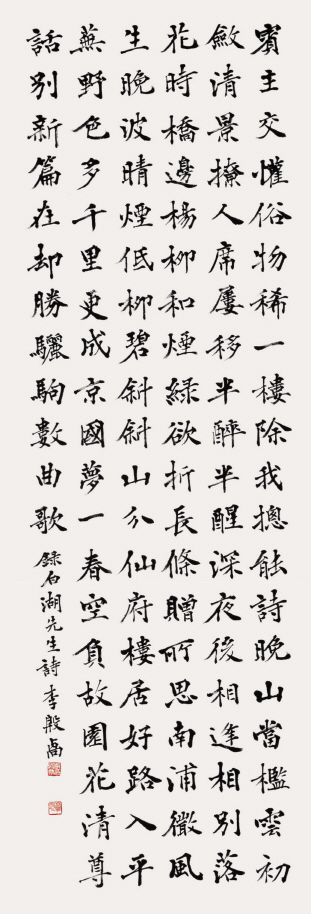 賓主交懽俗物稀一樓除我摠能詩晚山當檻雲初
斂清景撩人席屢移半醉半醒深夜後相逢相別落
花時橋邊楊柳和煙綠欲折長條贈所思南浦微風
生晚波晴煙低柳碧斜斜山分仙府樓居好路入平
蕪野色多千里更成京國夢一春空負故園花清尊
話別新篇在却勝驪駒數曲歌
録白湖先生詩李殷卨